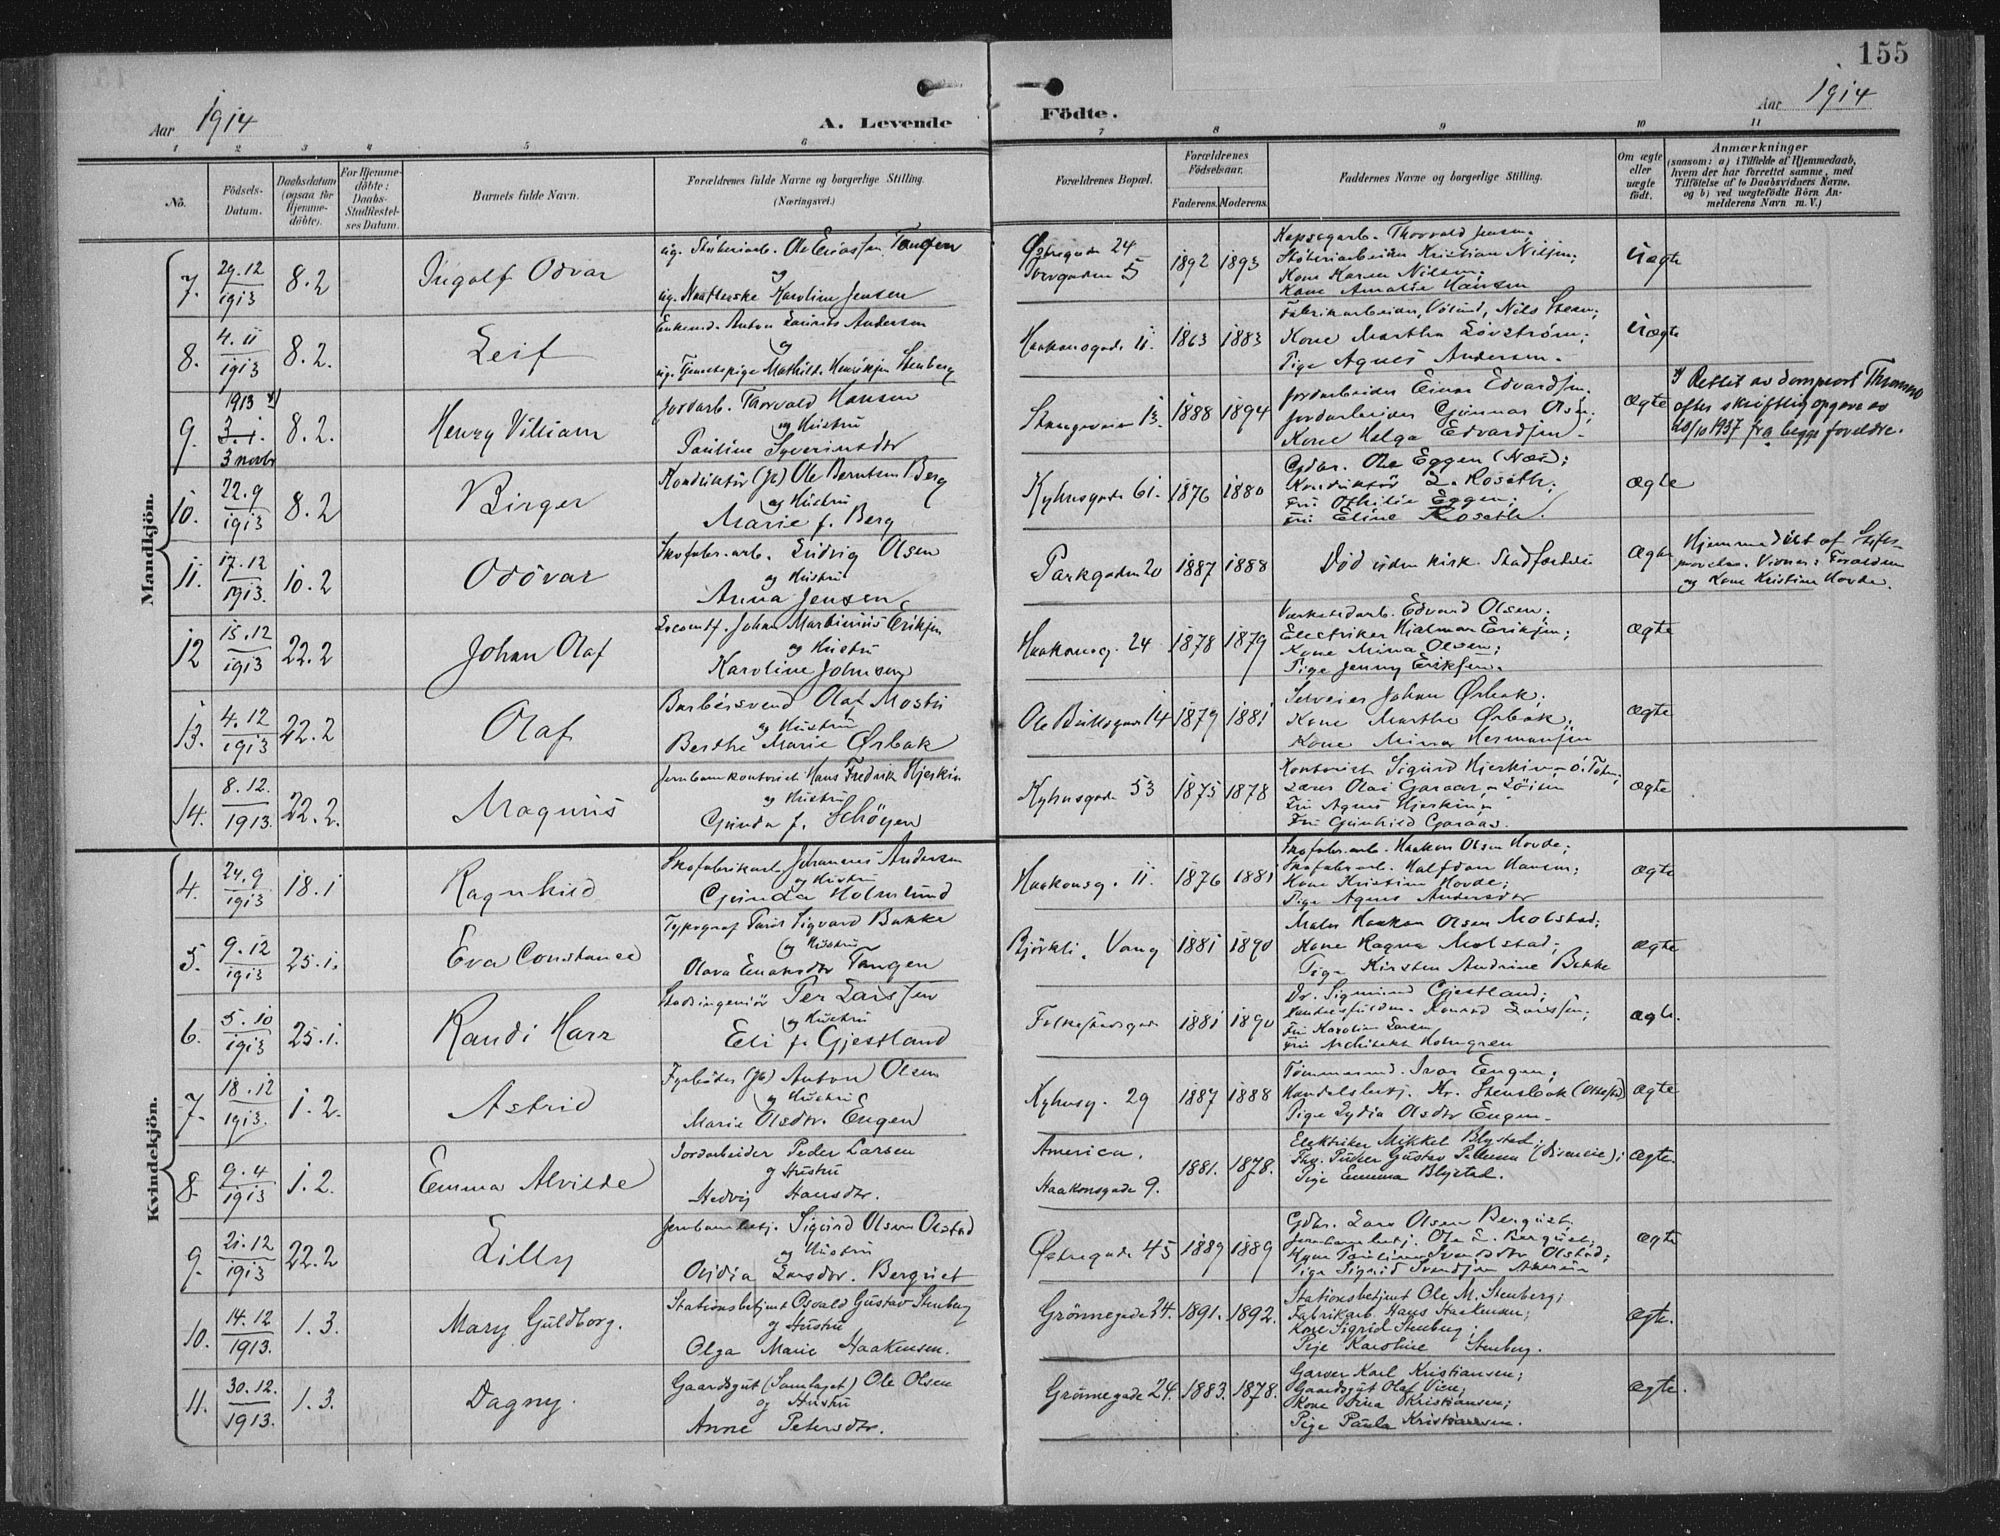 155
Aar 1914
A. Levende
Födte.
Aar 1914
1 2 3 4 5 6 7 8 9 10 11
No.
Födsels-
Datum.
Daabsdatum
(ogsaa for
Hjemme-
döbte).
For Hjemme-
döbte:
Daabs-
Stadfæstel-
ses Datum.
Barnets fulde Navn.
Forældrenes fulde Navne og borgerlige Stilling.
(Næringsvei.)
Forældrenes Bopæl.
Forældrenes
Födselsaar.
Faderens. Moderens.
Faddernes Navne og borgerlige Stilling.
Om ægte
eller
uægte
födt.
Anmærkninger
(saasom: a) i Tilfælde af Hjemmedaab,
hvem der har forrettet samme, med
Tilföielse af to Daabsvidners Navne,
og b) ved uægtefödte Börn An-
melderens Navn m. V.)
Mandkjön.
7. 29.12 1913 8.2 Ingolf Odvar
ug. Ole Eriassen Tangen
og
ug. Karoline Jensen
Østregade 24
5
1892 1893
Thorvald Jensen.
Støberiarbeider Kristian Nilsen;
Kone Karen Nilsen;
Kone Amalie Hansen
Uægte
8. 4.11 1913 8.2. Leif
Enkemd. Anton Laurits Andersen
og
ug. Tjenestepige Mathilde Henriksen Stenberg
Haakonsgade 11.
1863 1883
Nils Steen;
Kone Martha Løvstrøm;
Pige Agnes Andersen.
Uægte
9. 1913 x) 3.1. 3 novbr 8.2. Henry Villiam
Jordarb. Thorvald Hansen
og Hustru
Pauline Syverinsdtr
Stangeveien 13.
1888 1894
Jordarbeider Einar Edvardsen;
Jordarbeider Gunnar Olsen;
Kone Helga Edvardsen.
Ægte
x) Rettet av domprost
efter skriftlig opgave av
20/10 1937 fra begge foreldre.
10. 22.9 1913 8.2 Birger
Konduktør (Jb) Ole Berntsen Berg
og Hustru
Marie f. Berg
Kyhnsgade 61.
1876 1880
Gdbr. Ole Eggen (Næs);
Konduktør L. Roseth;
Fru Othilie Eggen;
Fru Eline Roseth.
Ægte
11. 17.12 1913. 10.2 Oddvar
Skofabr.arb. Ludvig Olsen
og Hustru
Anna Jensen
Parkgaden 20
1887 1888
Död uden kirk. Stadfæstelse
Ægte
Hjemmedöbt af
Vidner: Forældrene
og Kone Kristine Hovde.
12 15.12 1913 22.2 Johan Olaf
Johan Martinius Eriksen
og Hustru
Karoline Johnsen
Haakonsg. 24
1878 1879
Værkstedarb. Edvard Olsen;
Electriker Hjalmar Eriksen;
Kone Mina Olsen;
Pige Jenny Eriksen.
Ægte
13. 4.12 1913 22.2 Olaf
Barbersvend Olaf Mostu
og Hustru
Berthe Marie Ørbak
Ole Bullsgade 14
1879 1881
Johan Ørbak;
Kone Marthe Ørbak;
Kone Minna Hermansen
Ægte
14. 8.12. 1913. 22.2. Magnus
Jernbanekontorist Hans Fredrik Hjerkin
og Hustru
Gunda f. Schöyen
Kyhnsgade 53
1875 1878
Kontorist Sigurd Hjerkin, Ö. Toten;
Lærer Olai Garaas, Löiten
Fru Agnes Hjerkin;
Fru Gunhild Garaas.
Ægte
Kvindekjön.
4. 24.9 1913 18.1 Ragnhild
Skofabrikarb. Johannes Andersen
og Hustru
Gunda Holmlund
Haakonsg. 11.
1876 1881
Skofabr.arb. Haakon Olsen Hovde;
Skofabr.arb. Halfdan Hansen;
Kone Kristine Hovde;
Pige Agnes Andersdtr
Ægte
5. 9.12 1913 25.1. Eva Constance
Typograf Sigvard Bakke
og Hustru
Olava Tangen
Björkli, Vang
1881 1890
Maler Haakon Olsen Molstad;
Kone Ragna Molstad;
Pige Kirsten Andrine Bakke
Ægte
6. 5.10 1913 25.1. Randi Harr
Stadsingeniør Per Larssen
og Hustru
Eli f. Gjestland
Folkestadsgade
1881 1890
Dr. Sigmund Gjestland;
Konrad Larssen;
Fru Karoline Larsen
Fru Architekt Holmgren
Ægte.
7. 18.12 1913. 1.2. Astrid
Fyrböder (Jb) Anton Olsen
og Hustru
Marie Olsdtr. Engen
Kyhnsg. 29
1887 1888
Tömmermd. Ivar Engen;
Handelsbetj. Kr. Stensbak
Pige Lydia Olsdtr Engen.
Ægte
8. 9.4 1913 1.2. Emma Alvilde
Jordarbeider Peder Larsen
og Hustru
Hedvig Hansdtr.
America.
Haakonsgade 9.
1881. 1878.
Elektriker Mikkel Blystad;
Gustav
Pige Emma Blystad.
Ægte.
9. 21.12 1913 22.2 Lilly
Jernbanebetj. Sigurd Olsen Olstad
og Hustru
Ovidia Larsdtr. Berquist
Østregade 45
1889 1889
Gdbr. Lars Olsen Berquist
Jernbanebetj. Ole L. Berquist;
Pauline Svendsdtr Olstad;
Pige Sigrid Svendsen
Ægte
10. 14.12 1913. 1.3. Mary Guldborg.
Stationsbetjent Osvald Gustav Stenberg
og Hustru
Olga Marie Haakensen.
Grönnegade 24.
1891. 1892.
Stationsbetjent Ole M. Stenberg;
Fabrikarb. Hans Haakensen;
Kone Sigrid Stenberg;
Pige Karoline Stenberg.
Ægte.
11. 30.12. 1913. 1.3. Dagny.
Gaardsgut (Samlaget) Ole Olsen
og Hustru
Anne Petersdtr.
Grönnegade 24.
1883. 1878.
Garver Karl Kristiansen;
Gaardsgut Olaf Vien;
Kone Kristiansen;
Pige Paula Kristiansen.
Ægte.